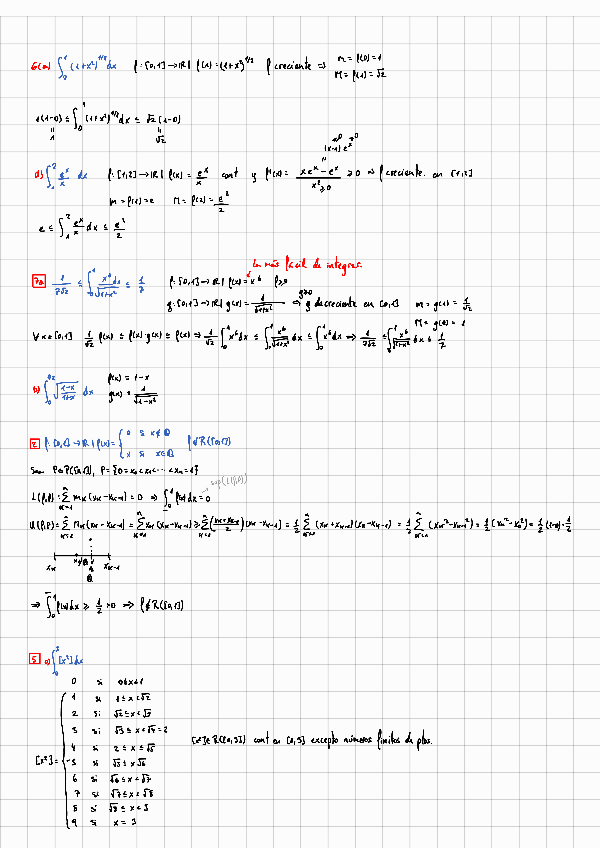 6(a) ∫₀¹ (1+x²)^{1/2} dx   f: [0,1] → ℝ | f(x) = (1+x²)^{1/2}   f creciente ⇒ m = f(0) = 1
M = f(1) = √2
1(1-0) ≤ ∫₀¹ (1+x²)^{1/2} dx ≤ √2 (1-0)
1   √2
d) ∫₁² eˣ/x dx   f: [1,2] → ℝ | f(x) = eˣ/x   cont y f'(x) = (x eˣ - eˣ)/x² ≥ 0 ⇒ f creciente en [1,2]
(x-1) eˣ
m = f(1) = e   M = f(2) = e²/2
e ≤ ∫₁² eˣ/x dx ≤ e²/2
Lo más fácil de integrar.
7a) 1/(7√2) ≤ ∫₀¹ x⁶dx/√(1+x²) ≤ 1/7   f: [0,1] → ℝ | f(x) = x⁶   f≥0
g: [0,1] → ℝ | g(x) = 1/√(1+x²)   g≥0 ⇒ g decreciente en [0,1]   m = g(1) = 1/√2
M = g(0) = 1
∀x∈[0,1]   1/√2 f(x) ≤ f(x)·g(x) ≤ f(x) ⇒ 1/√2 ∫₀¹ x⁶dx ≤ ∫₀¹ x⁶/√(1+x²) dx ≤ ∫₀¹ x⁶dx ⇒ 1/(7√2) ≤ ∫₀¹ x⁶/√(1+x²) dx ≤ 1/7
b) ∫₀ √((1-x)/(1+x)) dx   f(x) = 1-x
g(x) = 1/√(1-x²)
2 f: [0,1] → ℝ | f(x) = { 0 si x∉ℚ   f∉R([0,1])
x si x∈ℚ
Sea P∈P([0,1]), P = {0=x₀<x₁<…<xₙ=1}
sup{L(f,P)}
L(f,P) = Σ mₖ (xₖ-xₖ₋₁) = 0 ⇒ ∫₀¹ f(x)dx = 0
U(f,P) = Σ Mₖ (xₖ-xₖ₋₁) = Σ xₖ (xₖ-xₖ₋₁) ≥ Σ ((xₖ+xₖ₋₁)/2) (xₖ-xₖ₋₁) = 1/2 Σ (xₖ+xₖ₋₁)(xₖ-xₖ₋₁) = 1/2 Σ (xₖ²-xₖ₋₁²) = 1/2 (xₙ²-x₀²) = 1/2 (1-0) = 1/2
xₖ   x∉ℚ   ∈   xₖ₋₁
ℚ
⇒ ∫₀¹ f(x)dx ≥ 1/2 > 0 ⇒ f∉R([0,1])
5 a) ∫₀³ [x²] dx
0 si 0≤x<1
1 si 1≤x<√2
2 si √2≤x<√3
3 si √3≤x<√4=2
4 si 2≤x<√5
[x²] = 5 si √5≤x√6
[x²]∈R([0,3]) cont en [0,3] excepto números finitos de ptos.
6 si √6≤x<√7
7 si √7≤x<√8
8 si √8≤x<3
9 si x=3